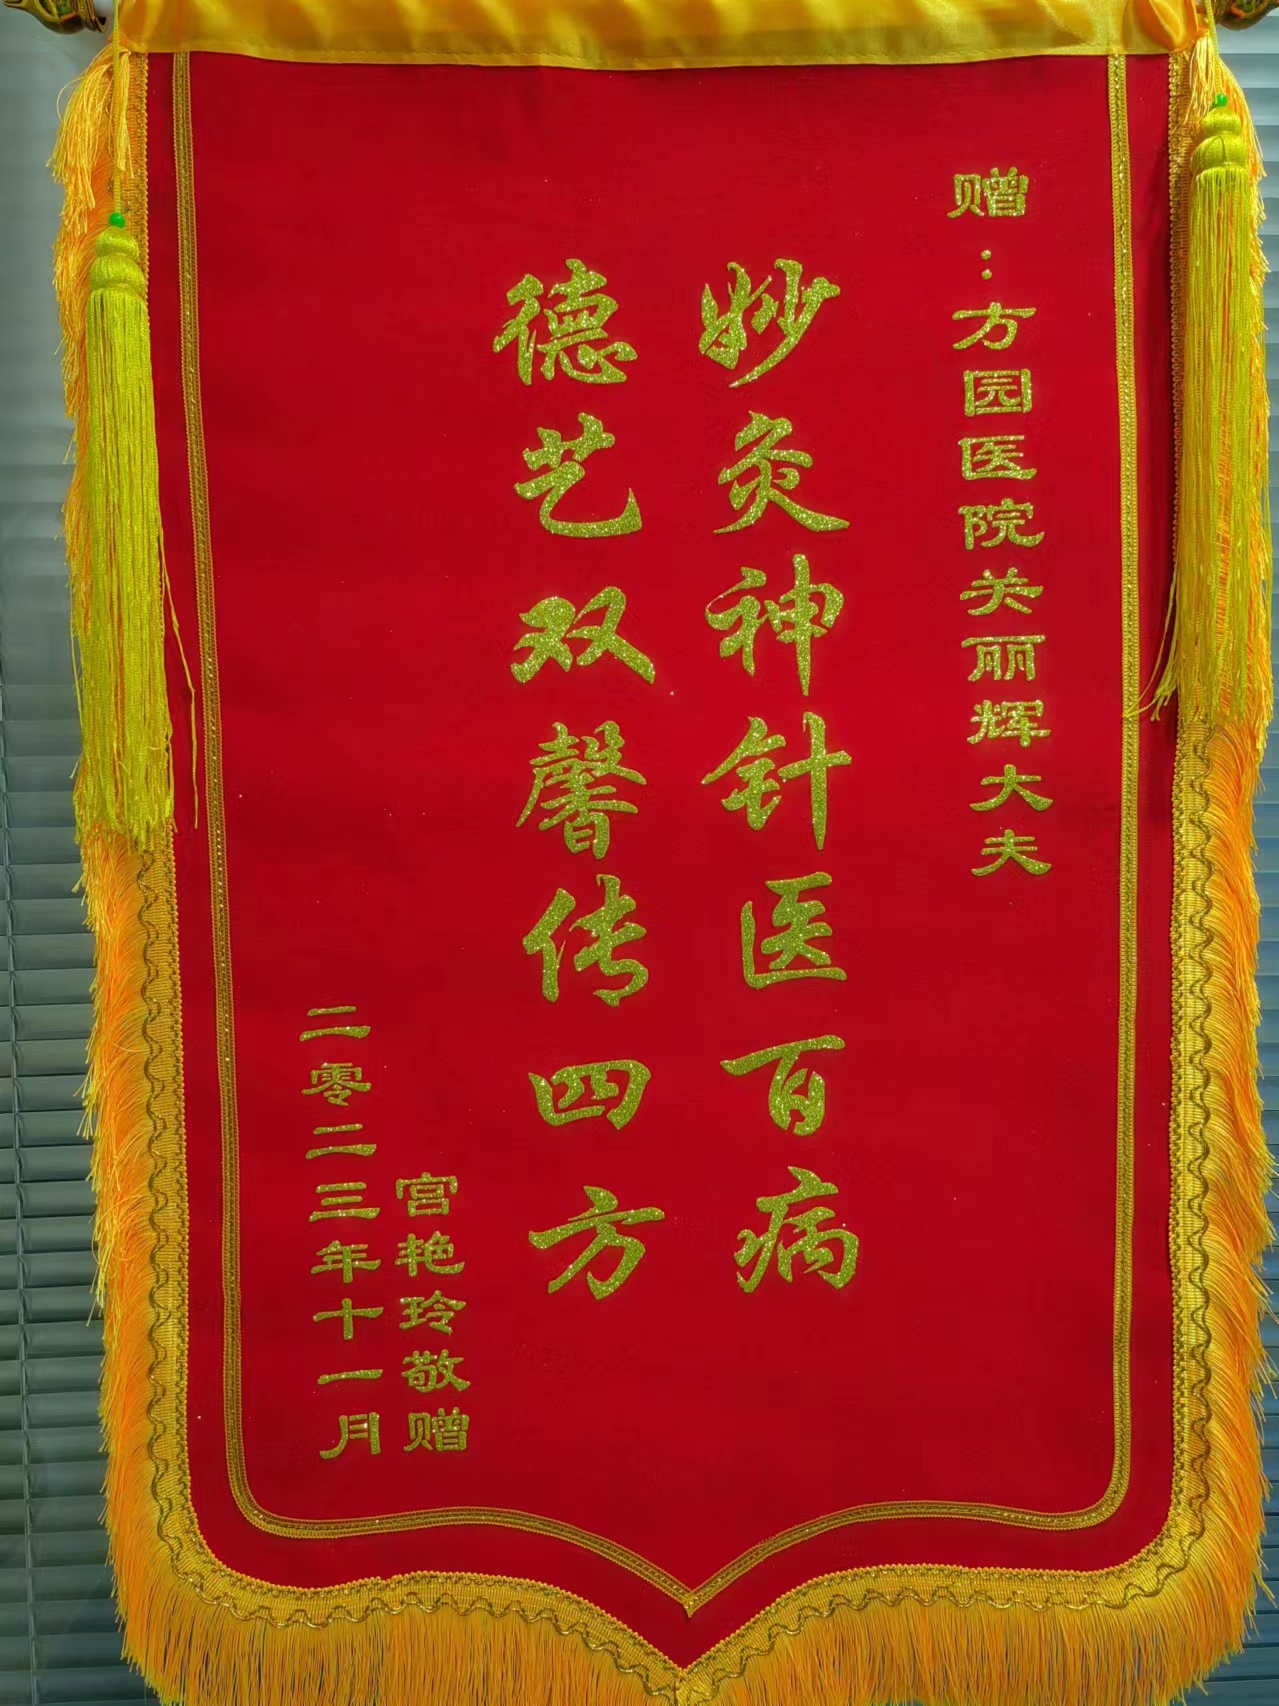 赠：方园医院关丽辉大夫
妙灸神针医百病
德艺双馨传四方
宫艳玲敬赠
二零二三年十一月